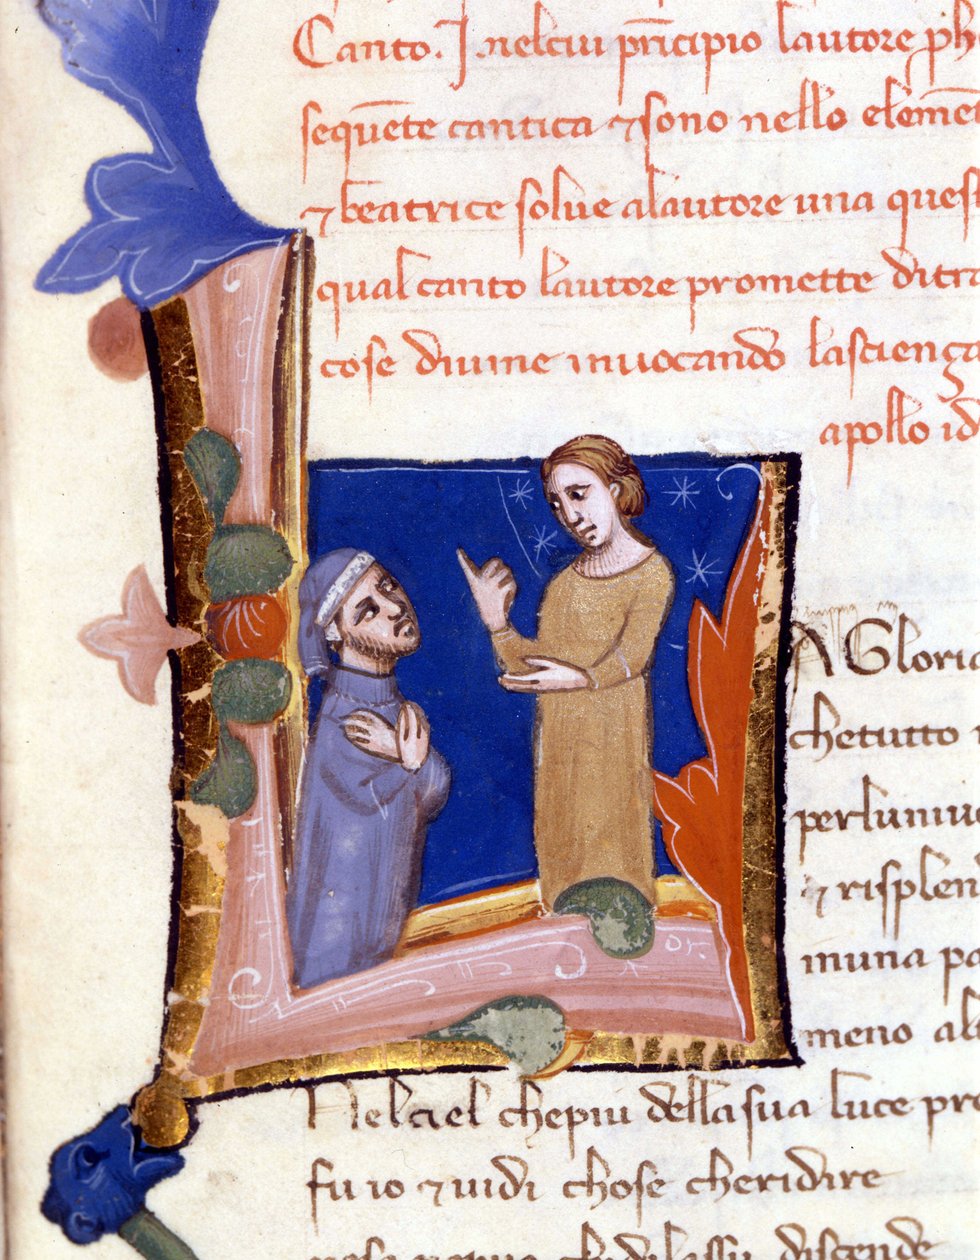 Canto. Inelcui prīcipio lautore ph
sequēte cantica ⁊ sono nello elemē
⁊ beatrice solue alautore una ques
qual canto lautore promette ditra
cose diuine inuocando lascienza
apollo id
LA Gloria
chetutto
perluniu
⁊ risplen
inuna pa
meno al
Nelciel chepiu dellasua luce pre
fu io ⁊ uidi chose cheridire